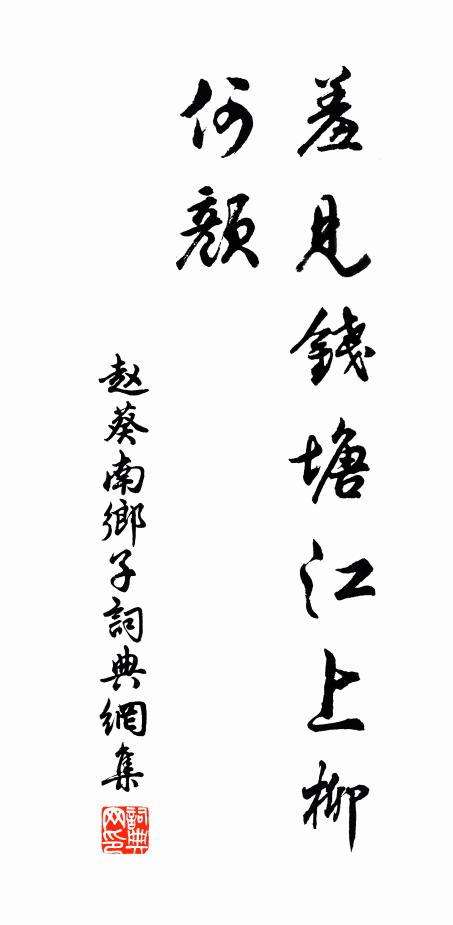 羞見錢塘江上柳
何顏
赵葵南鄉子詞典網集
詞典网印